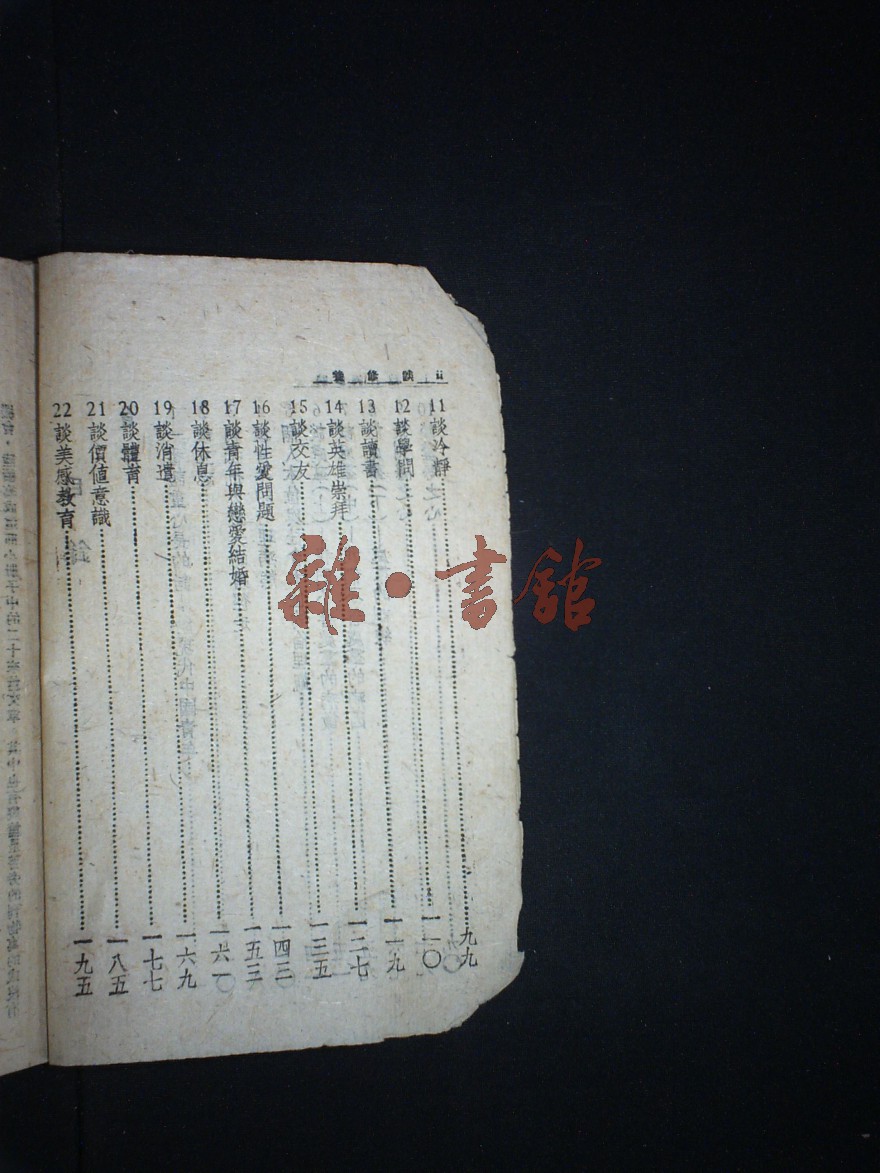 ii 談修養
11 談冷靜……九九
12 談學問……一一〇
13 談讀書……一一九
14 談英雄崇拜……一二七
15 談交友……一三五
16 談性愛問題……一四三
17 談青年與戀愛結婚……一五三
18 談休息……一六一
19 談消遣……一六九
20 談體育……一七七
21 談價值意識……一八五
22 談美感教育……一九五
雜·書館